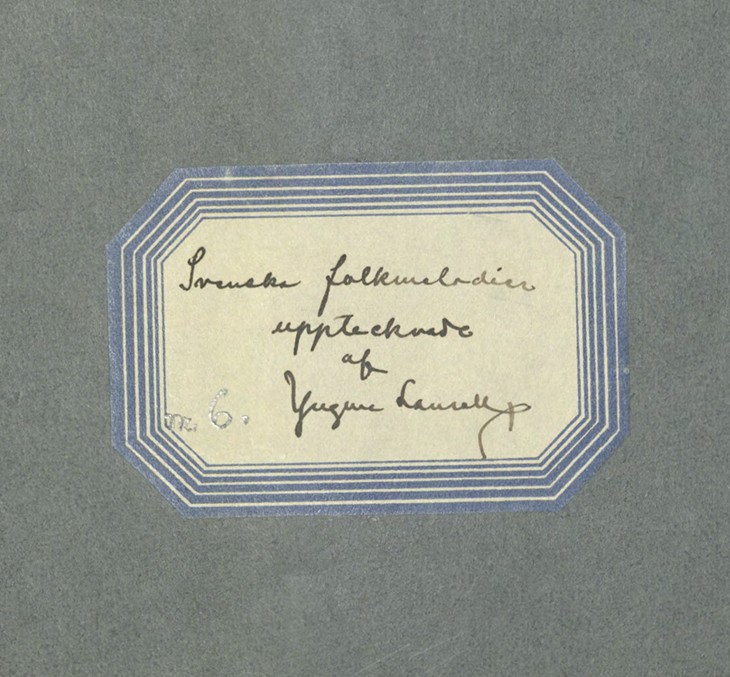 Svenska folkmelodier
upptecknade
af
Yngve Laurell
m. 6.